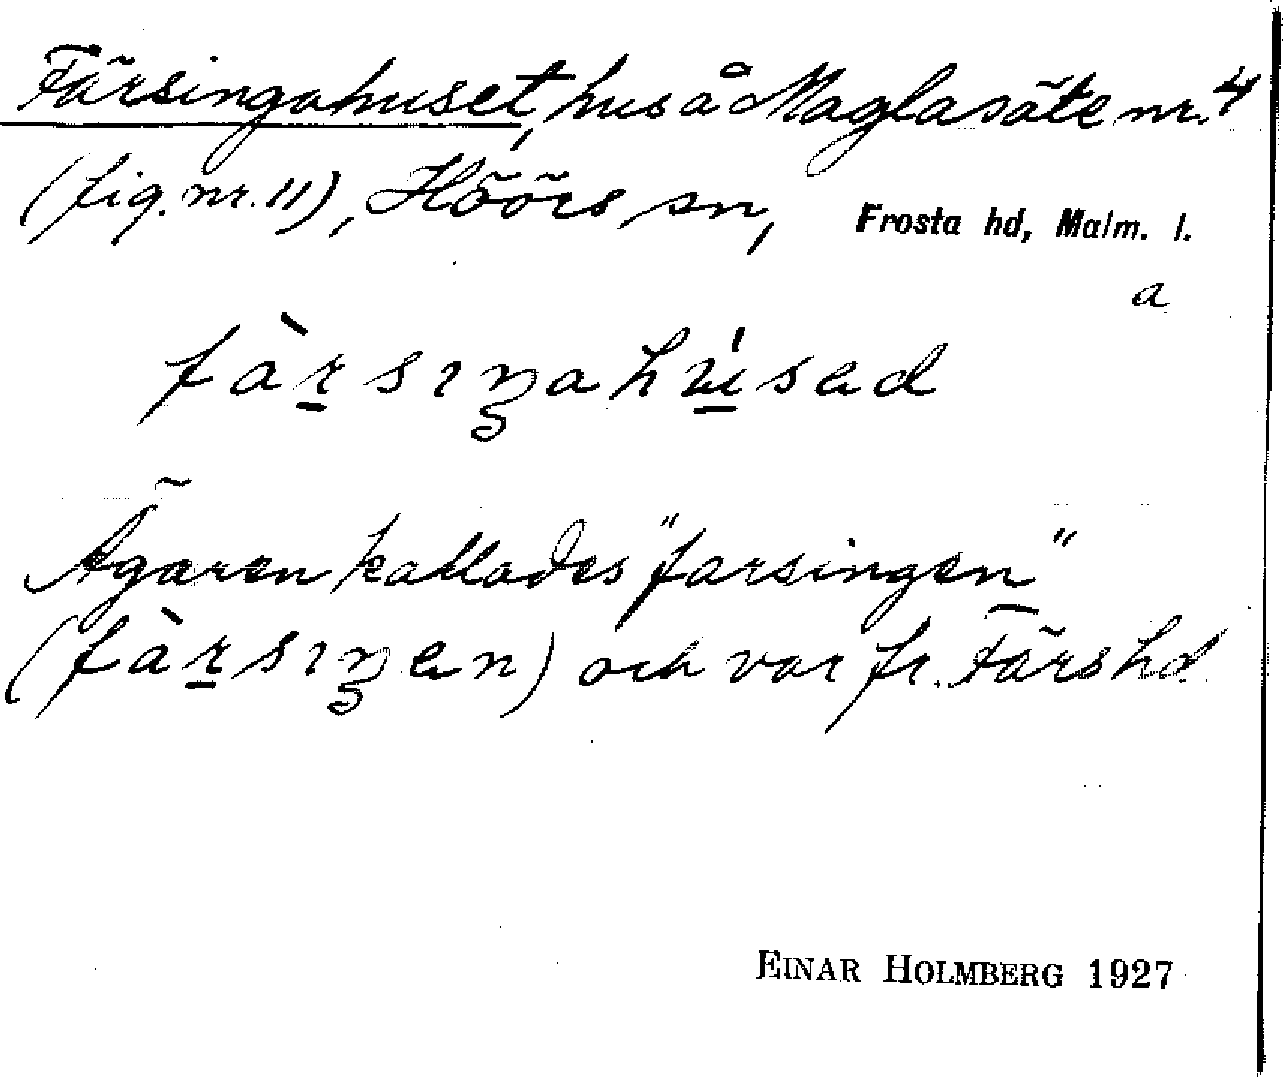 Färsingahuset, hus å Maglasäte nr. 4
(fig. nr. 11), Höörs sn, Frosta hd, Malm. l.
a
fàr̠sıŋahúsad
Ägaren kallades "farsingen"
(fàr̠sıŋen) och var fr. Färs hd
EINAR HOLMBERG 1927